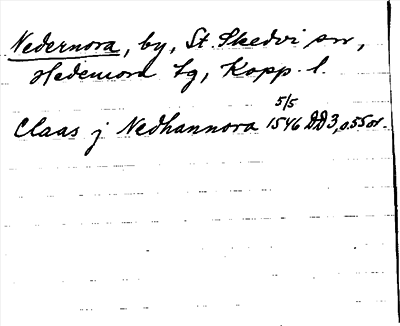 Nedernora, by, St. Skedvi sn,
Hedemora tg, Kopp. l.
5/5
Claas j Nedhannora 1546 DD3, o.55 or.